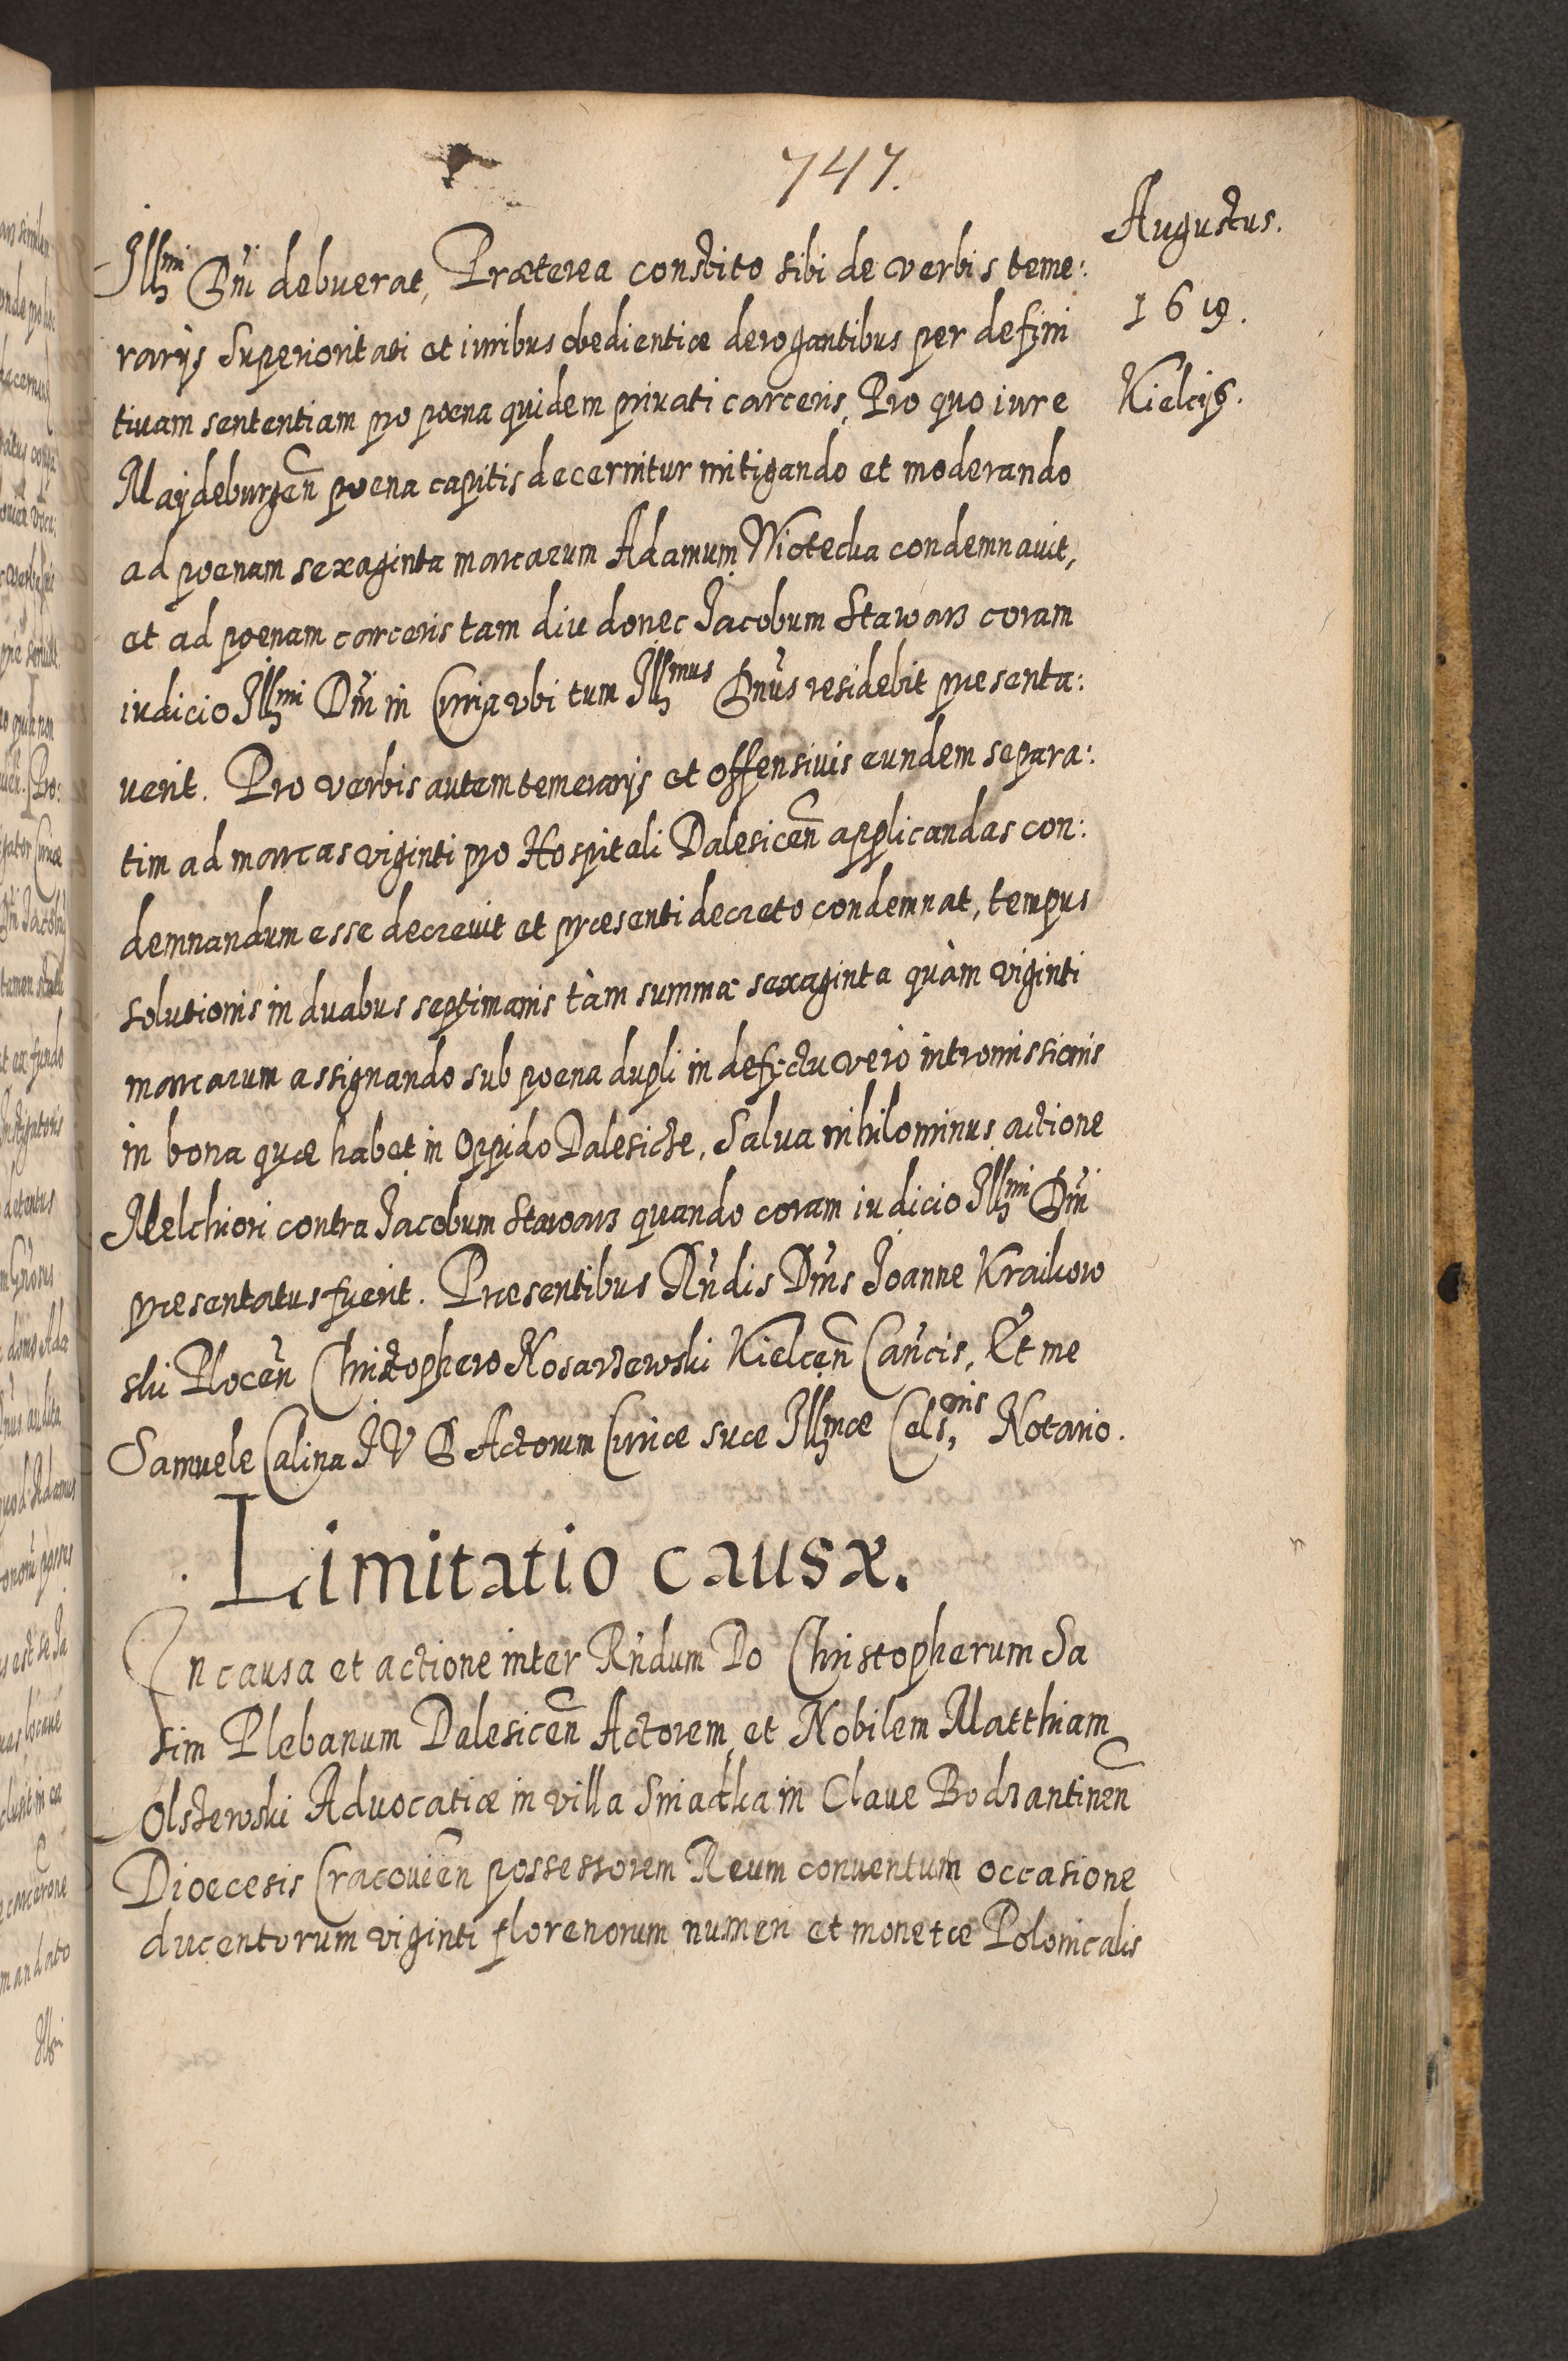 747.
Augustus.
1619.
Kielcijs.
Illmi Dni debuerat, Præterea constito sibi de verbis teme:
rarijs Superioritati et iuribus obedientiæ derogantibus per defini
tiuam sententiam pro poena quidem priuati carceris, Pro quo iure
Maÿdeburgen poena capitis decernitur mitigando et moderando
ad poenam sexaginta marcarum Adamum Wiotecka condemnauit,
et ad poenam carceris tam diu donec Jacobum Stawarz coram
iudicio Illmi Dni in Curia vbi tum Illmus Dnus residebit præsenta:
uerit. Pro verbis autem temerarijs et offensiuis eundem separa:
tim ad marcas viginti pro Hospitali Dalesicen applicandas con:
demnandum esse decreuit et præsenti decreto condemnat, tempus
solutionis in duabus septimanis tàm summæ sexaginta quàm viginti
marcarum assignando sub poena dupli in defectu verò intromissionis
in bona quæ habet in Oppido Dalesicze, Salua nihilominus actione
Melchiori contra Jacobum Stawarz quando coram iudicio Illmi Dni
præsentatus fuerit. Præsentibus Rndis Dnis Joanne Kraikow
ski Plocen Christophero Nosarzewski Kielcen Cancis, Et me
Samuele Calina J V D Actorum Curiæ suæ Illmæ Cels,nis Notario.
Limitatio causæ.
In causa et actione inter Rndum Do Christopherum Sa
sim Plebanum Dalesicen Actorem, et Nobilem Matthiam
Olszewski Aduocatiæ in villa Sniadka in Claue Bodzantinen
Dioecesis Cracouien possessorem Reum conuentum occasione
ducentorum viginti florenorum numeri et monetæ Polonicalis